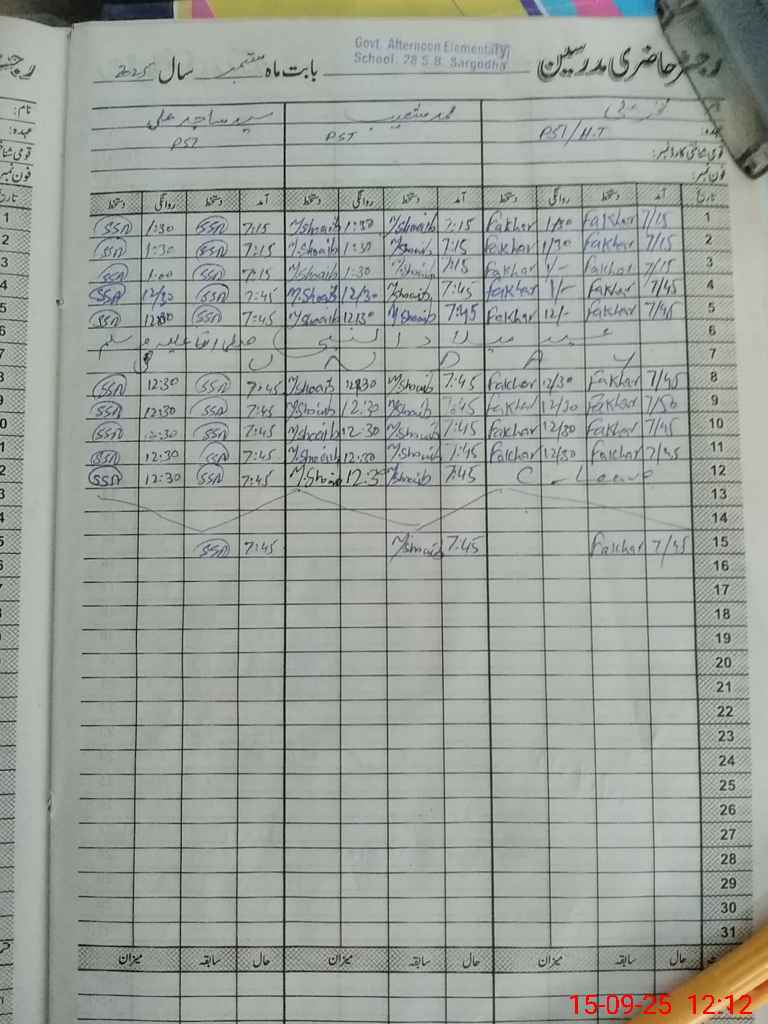 Govt. Afternoon Elementary
School. 78 S.B. Sargodha
رجسٹر حاضری مدرسین بابت ماہ ستمبر سال 2025
نام: فخر علی محمد شعیب سید ساجد علی
عہدہ: PST/H.T PST PST
قومی شناختی کارڈ نمبر:
فون نمبر:
تاریخ آمد دستخط روانگی دستخط آمد دستخط روانگی دستخط آمد دستخط روانگی دستخط
1 7/15 Fakhar 1/30 Fakhar 7:15 M/Shoaib 1:30 M/Shoaib 7:15 SSA 1:30 SSA
2 7/15 Fakhar 1/30 Fakhar 7:15 M/Shoaib 1:30 M/Shoaib 7:15 SSA 1:30 SSA
3 7/15 Fakhar 1/- Fakhar 7:15 M/Shoaib 1:30 M/Shoaib 7:15 SSA 1:00 SSA
4 7/45 Fakhar 1/- Fakhar 7:45 M/Shoaib 12/30 M/Shoaib 7:45 SSA 12/30 SSA
5 7/45 Fakhar 12/- Fakhar 7:45 M/Shoaib 12:30 M/Shoaib 7:45 SSA 12:30 SSA
6 عید میلاد النبی صلی اللہ علیہ وسلم
7 S U N D A Y
8 7/45 Fakhar 12/30 Fakhar 7:45 M/Shoaib 12:30 M/Shoaib 7:45 SSA 12:30 SSA
9 7/50 Fakhar 12/30 Fakhar 7:45 M/Shoaib 12:30 M/Shoaib 7:45 SSA 12:30 SSA
10 7/45 Fakhar 12/30 Fakhar 7:45 M/Shoaib 12:30 M/Shoaib 7:45 SSA 12:30 SSA
11 7/45 Fakhar 12/30 Fakhar 7:45 M/Shoaib 12:30 M/Shoaib 7:45 SSA 12:30 SSA
12 C-Leave 7:45 M/Shoaib 12:3 M.Shoaib 7:45 SSA 12:30 SSA
13
14
15 7/45 Fakhar 7:45 M/Shoaib 7:45 SSA
16
17
18
19
20
21
22
23
24
25
26
27
28
29
30
31
حال سابقہ میزان حال سابقہ میزان حال سابقہ میزان
15-09-25 12:12